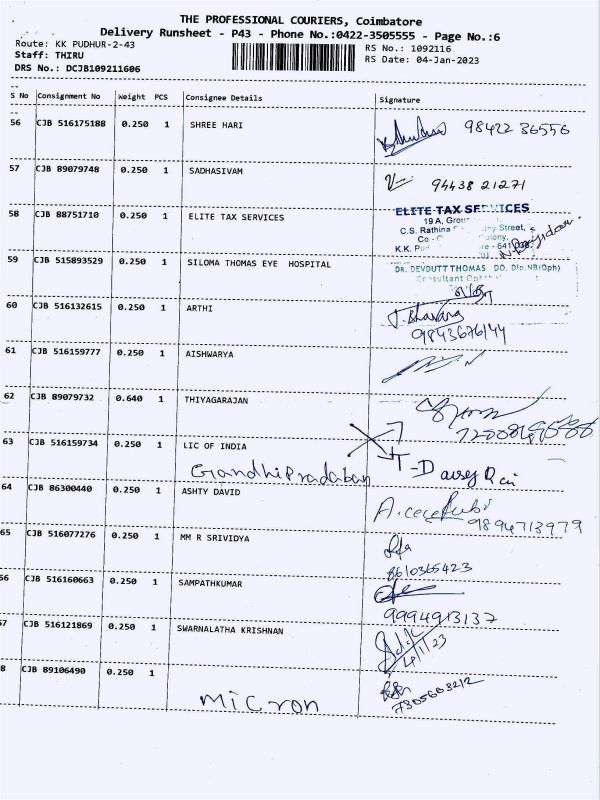 THE PROFESSIONAL COURIERS, Coimbatore
Delivery Runsheet - P43 - Phone No.:0422-3505555 - Page No.:6
Route: KK PUDHUR-2-43 RS No.: 1092116
Staff: THIRU RS Date: 04-Jan-2023
DRS No.: DCJB109211606
S No Consignment No Weight PCS Consignee Details Signature
56 CJB 516175188 0.250 1 SHREE HARI 98422 36556
57 CJB 89079748 0.250 1 SADHASIVAM 94438 21271
58 CJB 88751710 0.250 1 ELITE TAX SERVICES ELITE TAX SERVICES
19 A,
C.S. Rathina Street,
K.K.
59 CJB 515893529 0.250 1 SILOMA THOMAS EYE HOSPITAL DR. DEVDUTT THOMAS DO, Dip.NB(Oph)
Consultant
60 CJB 516132615 0.250 1 ARTHI
9843676144
61 CJB 516159777 0.250 1 AISHWARYA
62 CJB 89079732 0.640 1 THIYAGARAJAN
63 CJB 516159734 0.250 1 LIC OF INDIA
64 CJB 86300440 0.250 1 ASHTY DAVID
9894713979
65 CJB 516077276 0.250 1 MM R SRIVIDYA
8610365423
66 CJB 516160663 0.250 1 SAMPATHKUMAR
9994913137
67 CJB 516121869 0.250 1 SWARNALATHA KRISHNAN
4/1/23
8 CJB 89106490 0.250 1
micron 7305603212